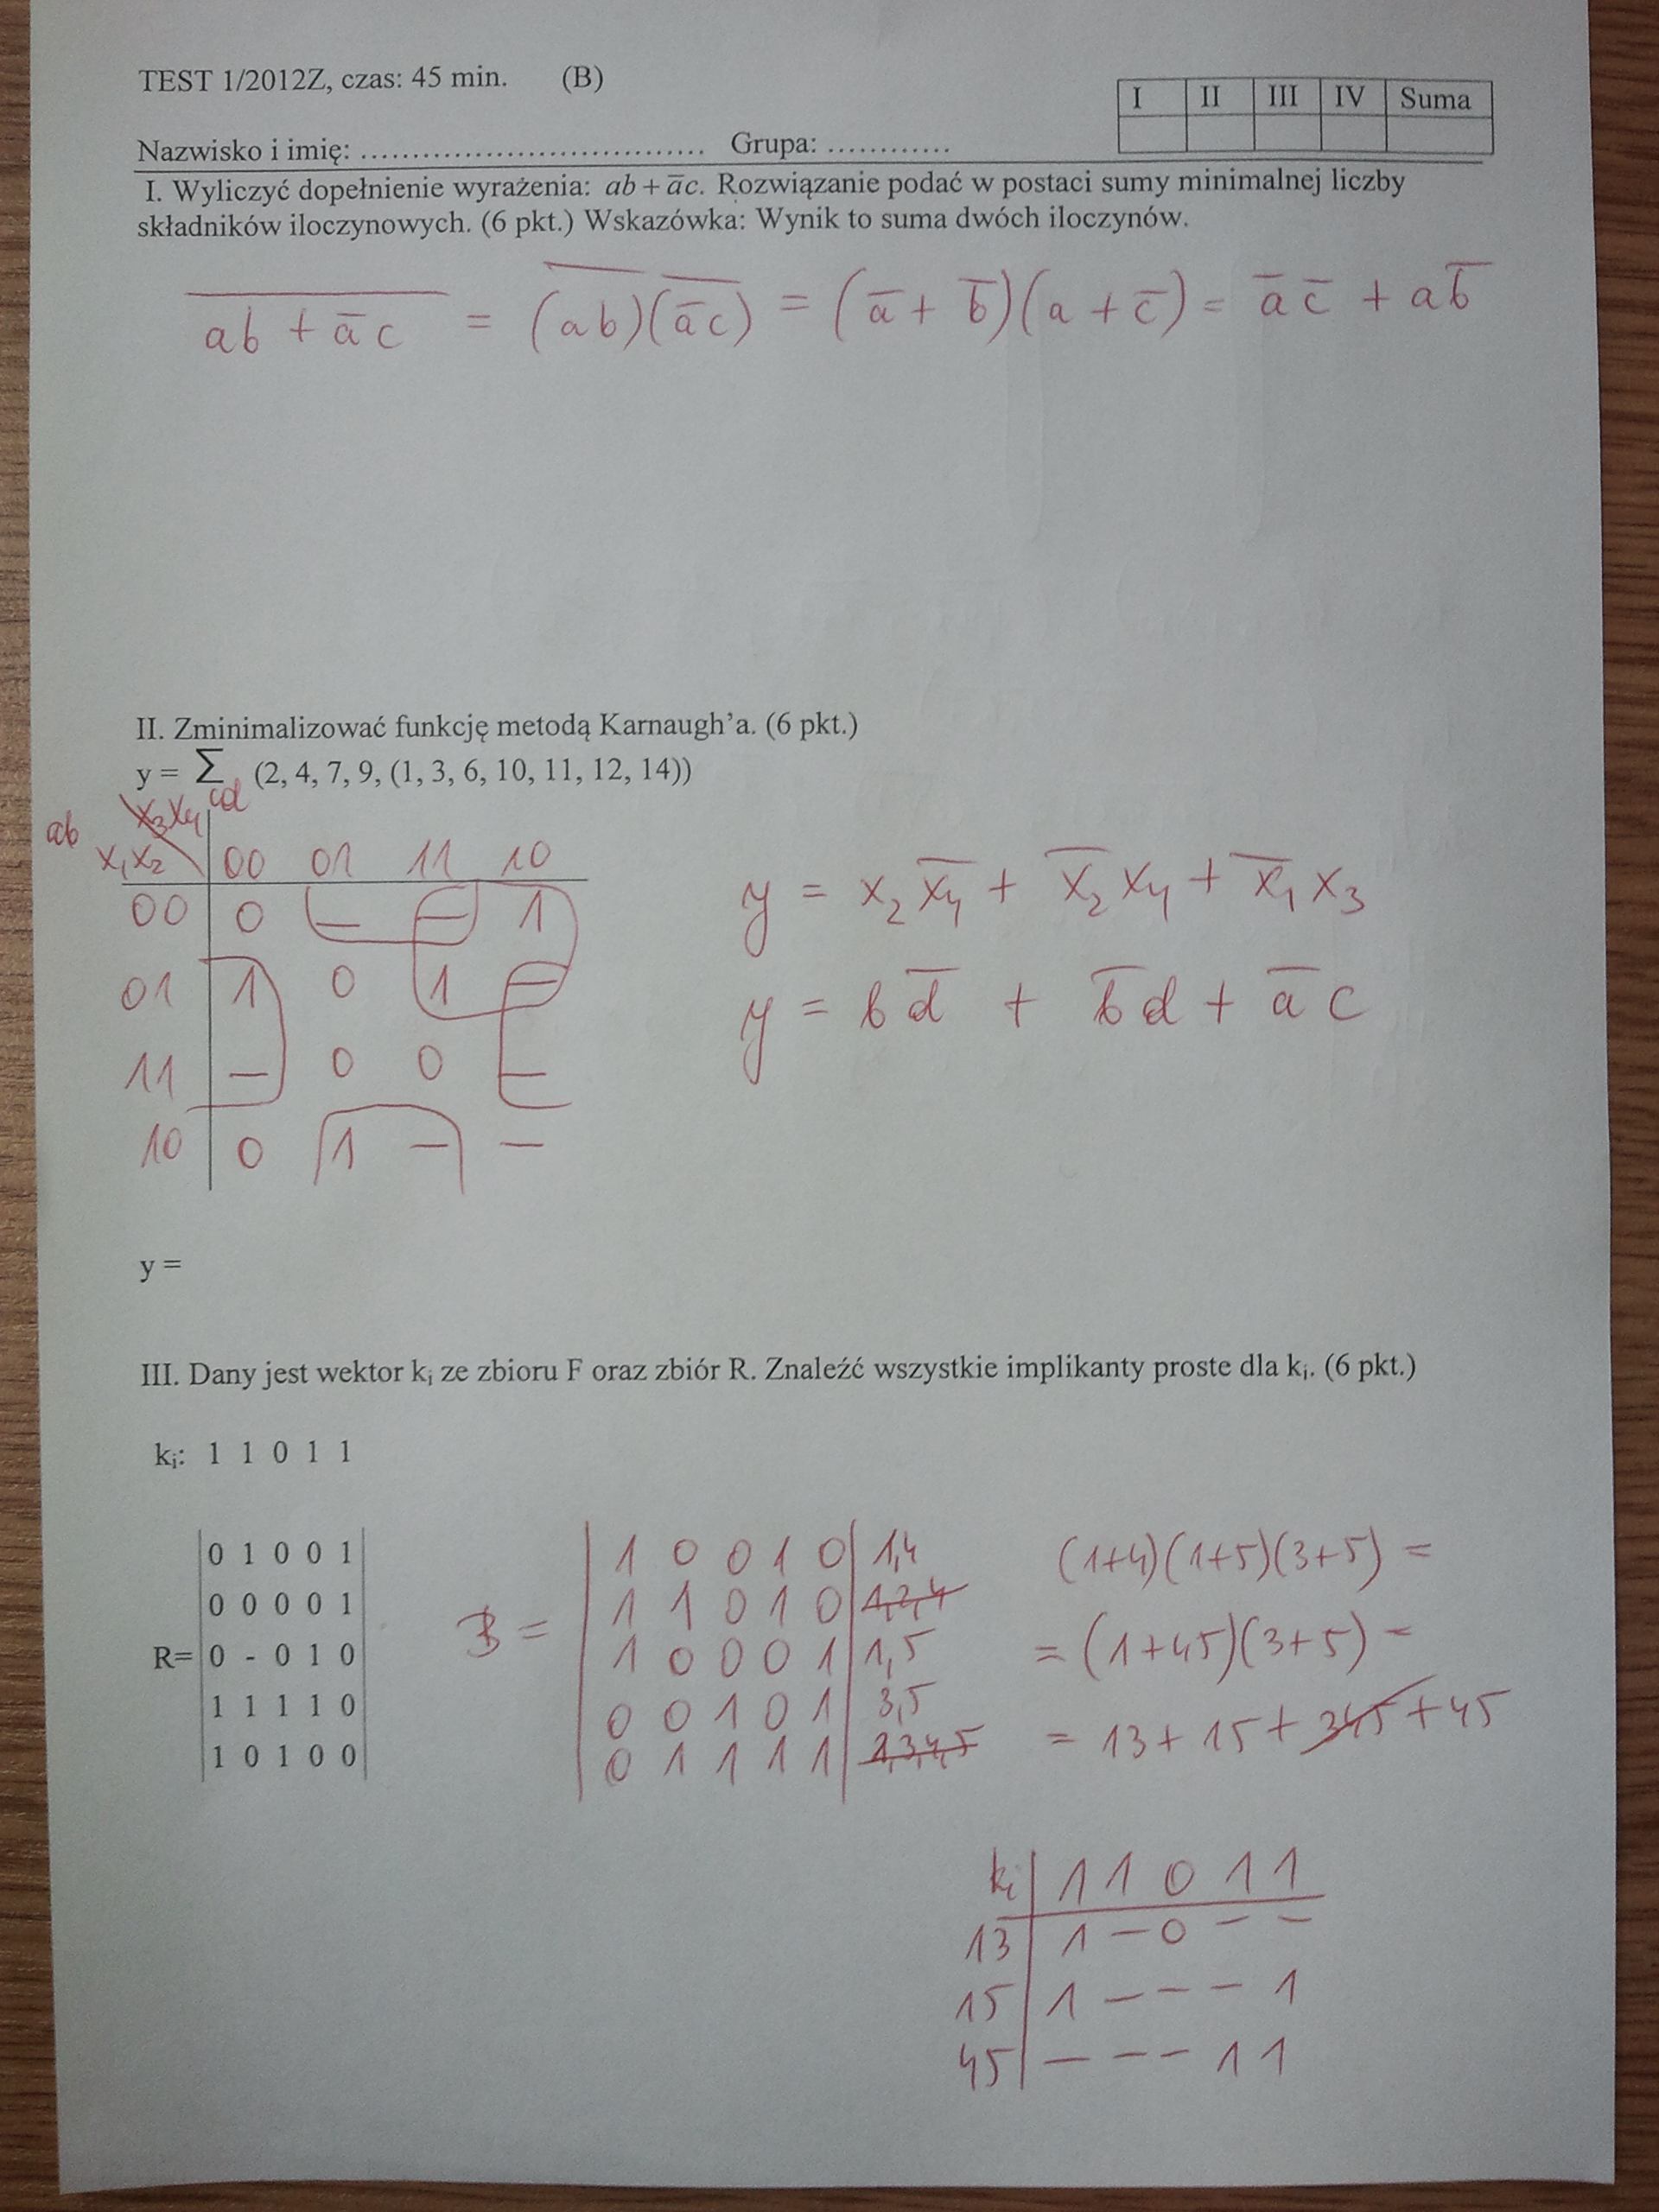 TEST 1/2012Z, czas: 45 min. (B)
I II III IV Suma
Nazwisko i imię: .................................. Grupa: ............
I. Wyliczyć dopełnienie wyrażenia: ab + a̅c. Rozwiązanie podać w postaci sumy minimalnej liczby
składników iloczynowych. (6 pkt.) Wskazówka: Wynik to suma dwóch iloczynów.
\overline{ab + \overline{a}c} = (\overline{ab})(\overline{\overline{a}c}) = (a̅ + b̅)(a + c̅) = a̅c̅ + ab̅
II. Zminimalizować funkcję metodą Karnaugh'a. (6 pkt.)
y = Σ (2, 4, 7, 9, (1, 3, 6, 10, 11, 12, 14))
ab x₃x₄ cd
x₁x₂ 00 01 11 10
00 0 — — 1
01 1 0 1 —
11 — 0 0 —
10 0 1 — —
y = x₂x̅₄ + x̅₂x₄ + x̅₁x₃
y = bd̅ + b̅d + a̅c
y =
III. Dany jest wektor kᵢ ze zbioru F oraz zbiór R. Znaleźć wszystkie implikanty proste dla kᵢ. (6 pkt.)
kᵢ: 1 1 0 1 1
R=
0 1 0 0 1
0 0 0 0 1
0 - 0 1 0
1 1 1 1 0
1 0 1 0 0
B =
1 0 0 1 0 1,4
1 1 0 1 0 1,2,4
1 0 0 0 1 1,5
0 0 1 0 1 3,5
0 1 1 1 1 2,3,4,5
(1+4)(1+5)(3+5) =
= (1+45)(3+5) =
= 13 + 15 + 345 + 45
kᵢ 1 1 0 1 1
13 1 — 0 — —
15 1 — — — 1
45 — — — 1 1